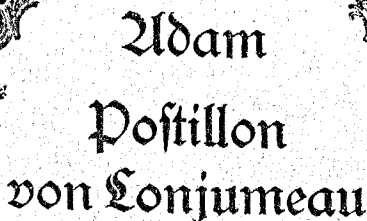 Adam
Poſtillon
von Lonjumeau